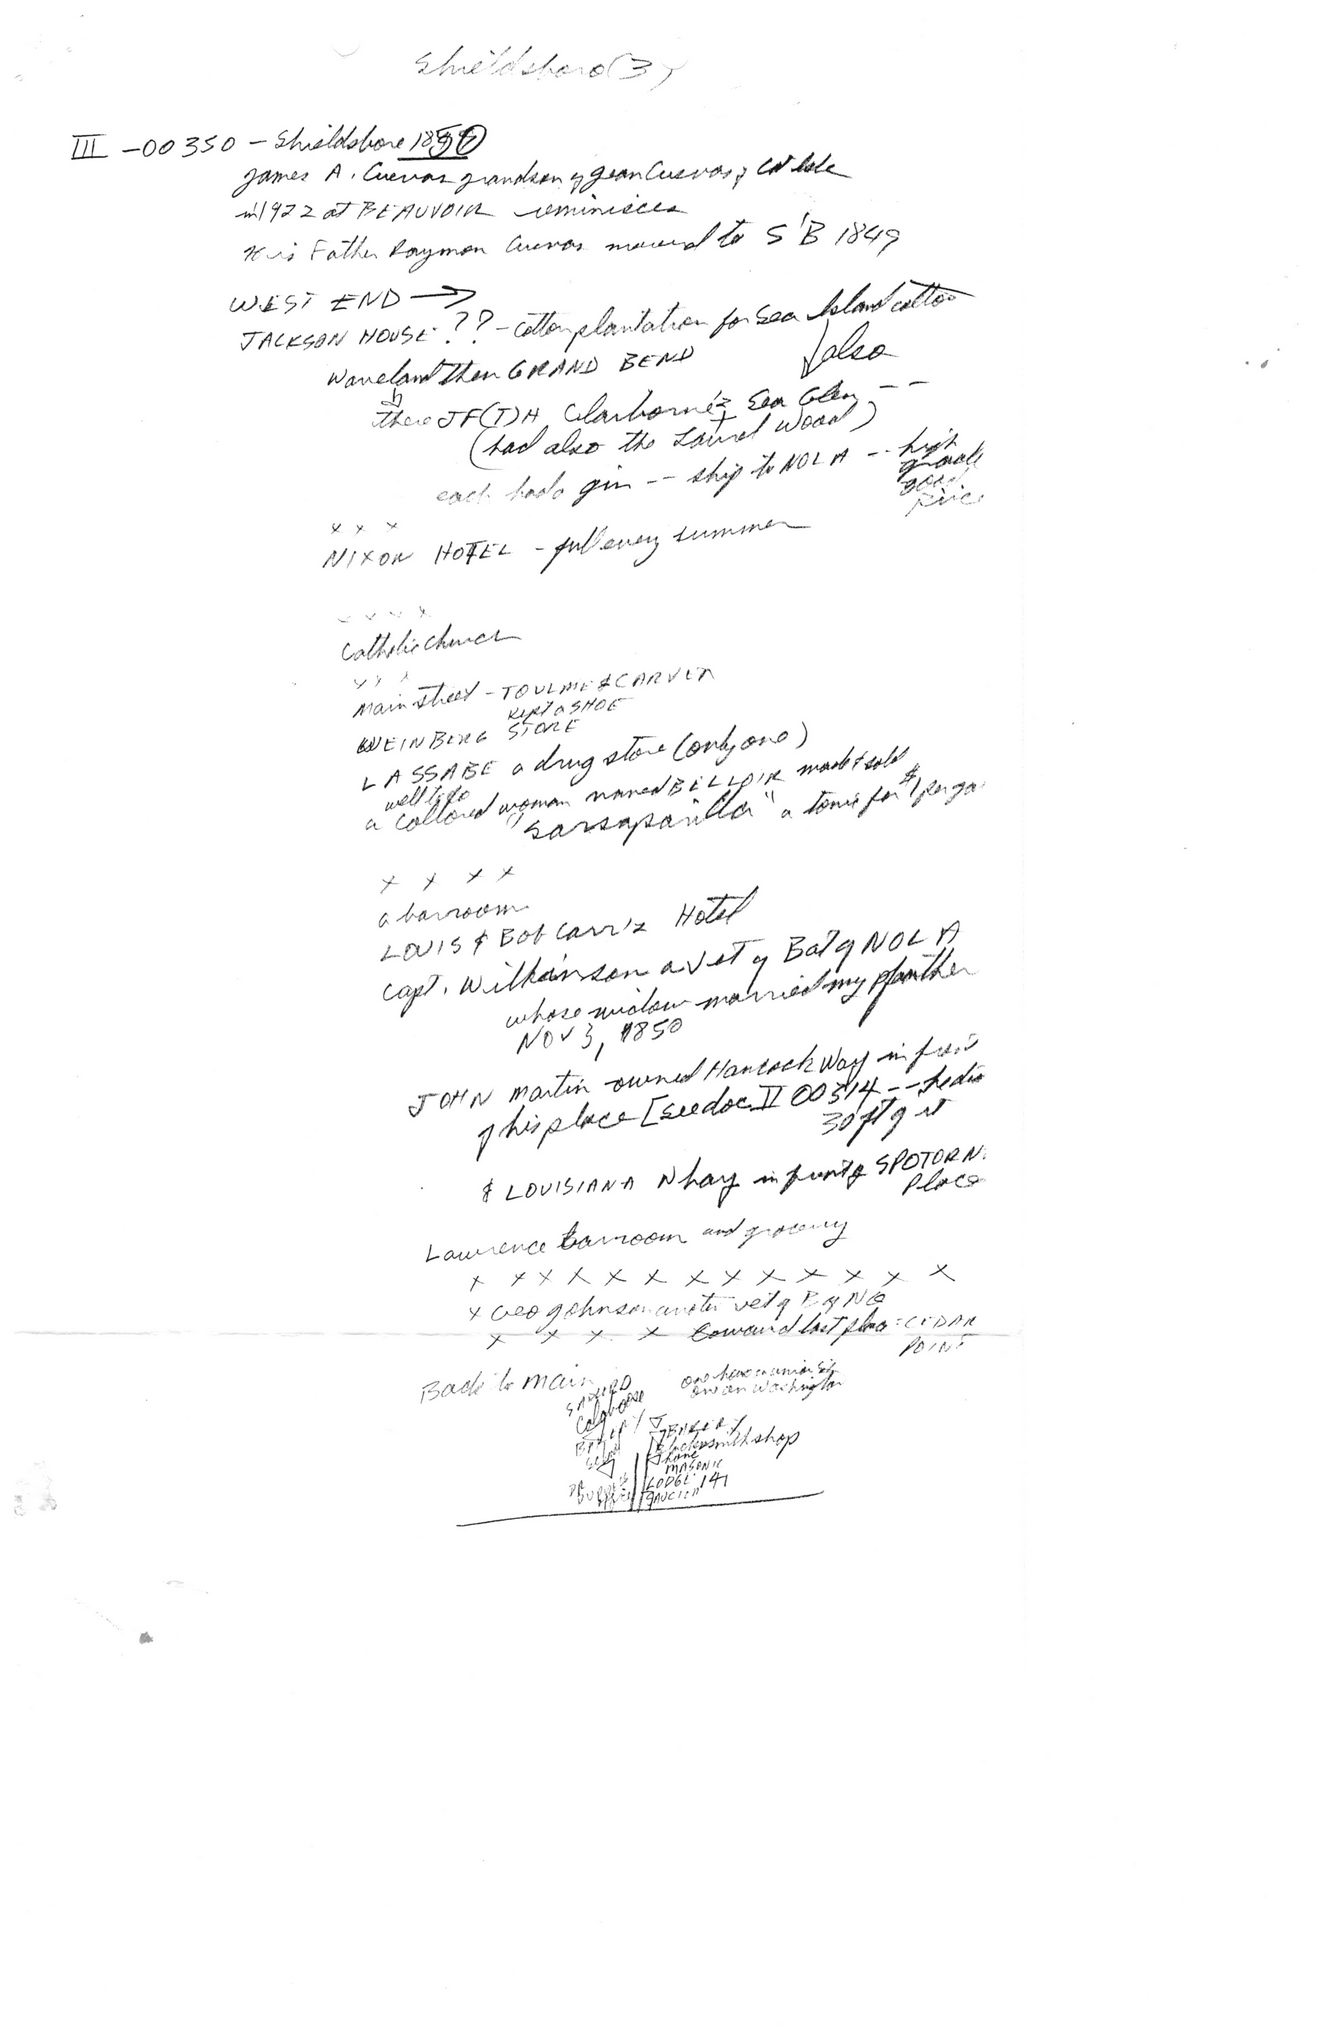 Shieldsboro (3)
III - 00350 - Shieldsboro 18
James A. Cuevas grandson of Jean Cuevas of Cat Isle
in 1922 at BEAUVOIR reminisces
His Father Raymon Cuevas moved to S'B 1849
WEST END →
JACKSON HOUSE ?? - cotton plantation for Sea Island cotton
Waveland then GRAND BEND
also
there JF(T)H Claiborne's Sea Glen --
(had also the Laurel Wood)
each had a gin -- ship to NOLA -- high
grade
good
price
x x x
NIXON HOTEL - full every summer
x x x x
Catholic Church
x x x
Main Street - TOULME & CARVER
kept a SHOE
WEINBERG STORE
LASSABE a drug store (only one)
well to do
a collored woman named BELLOIR made & sold
"Sarsaparilla" a tonic for $1 per ga
x x x x
a barroom
LOUIS & Bob Carr's Hotel
Capt. Wilkinson a vet of Bat of NOLA
whose widow married my father
NOV 3, 1850
JOHN Martin owned Hancock Way in front
of his place [see doc II 00314 --
30 ft of it
& LOUISIANA in front of SPOTORN
Place
Lawrence barroom and grocery
x x x x x x x x x x x x x
x Geo Johnson another vet of B of NO
x x x x toward last place: CEDAR
POINT
Back to Main
one on Washington
Calaboose
BAKERY
Blacksmith shop
MASONIC
LODGE 141